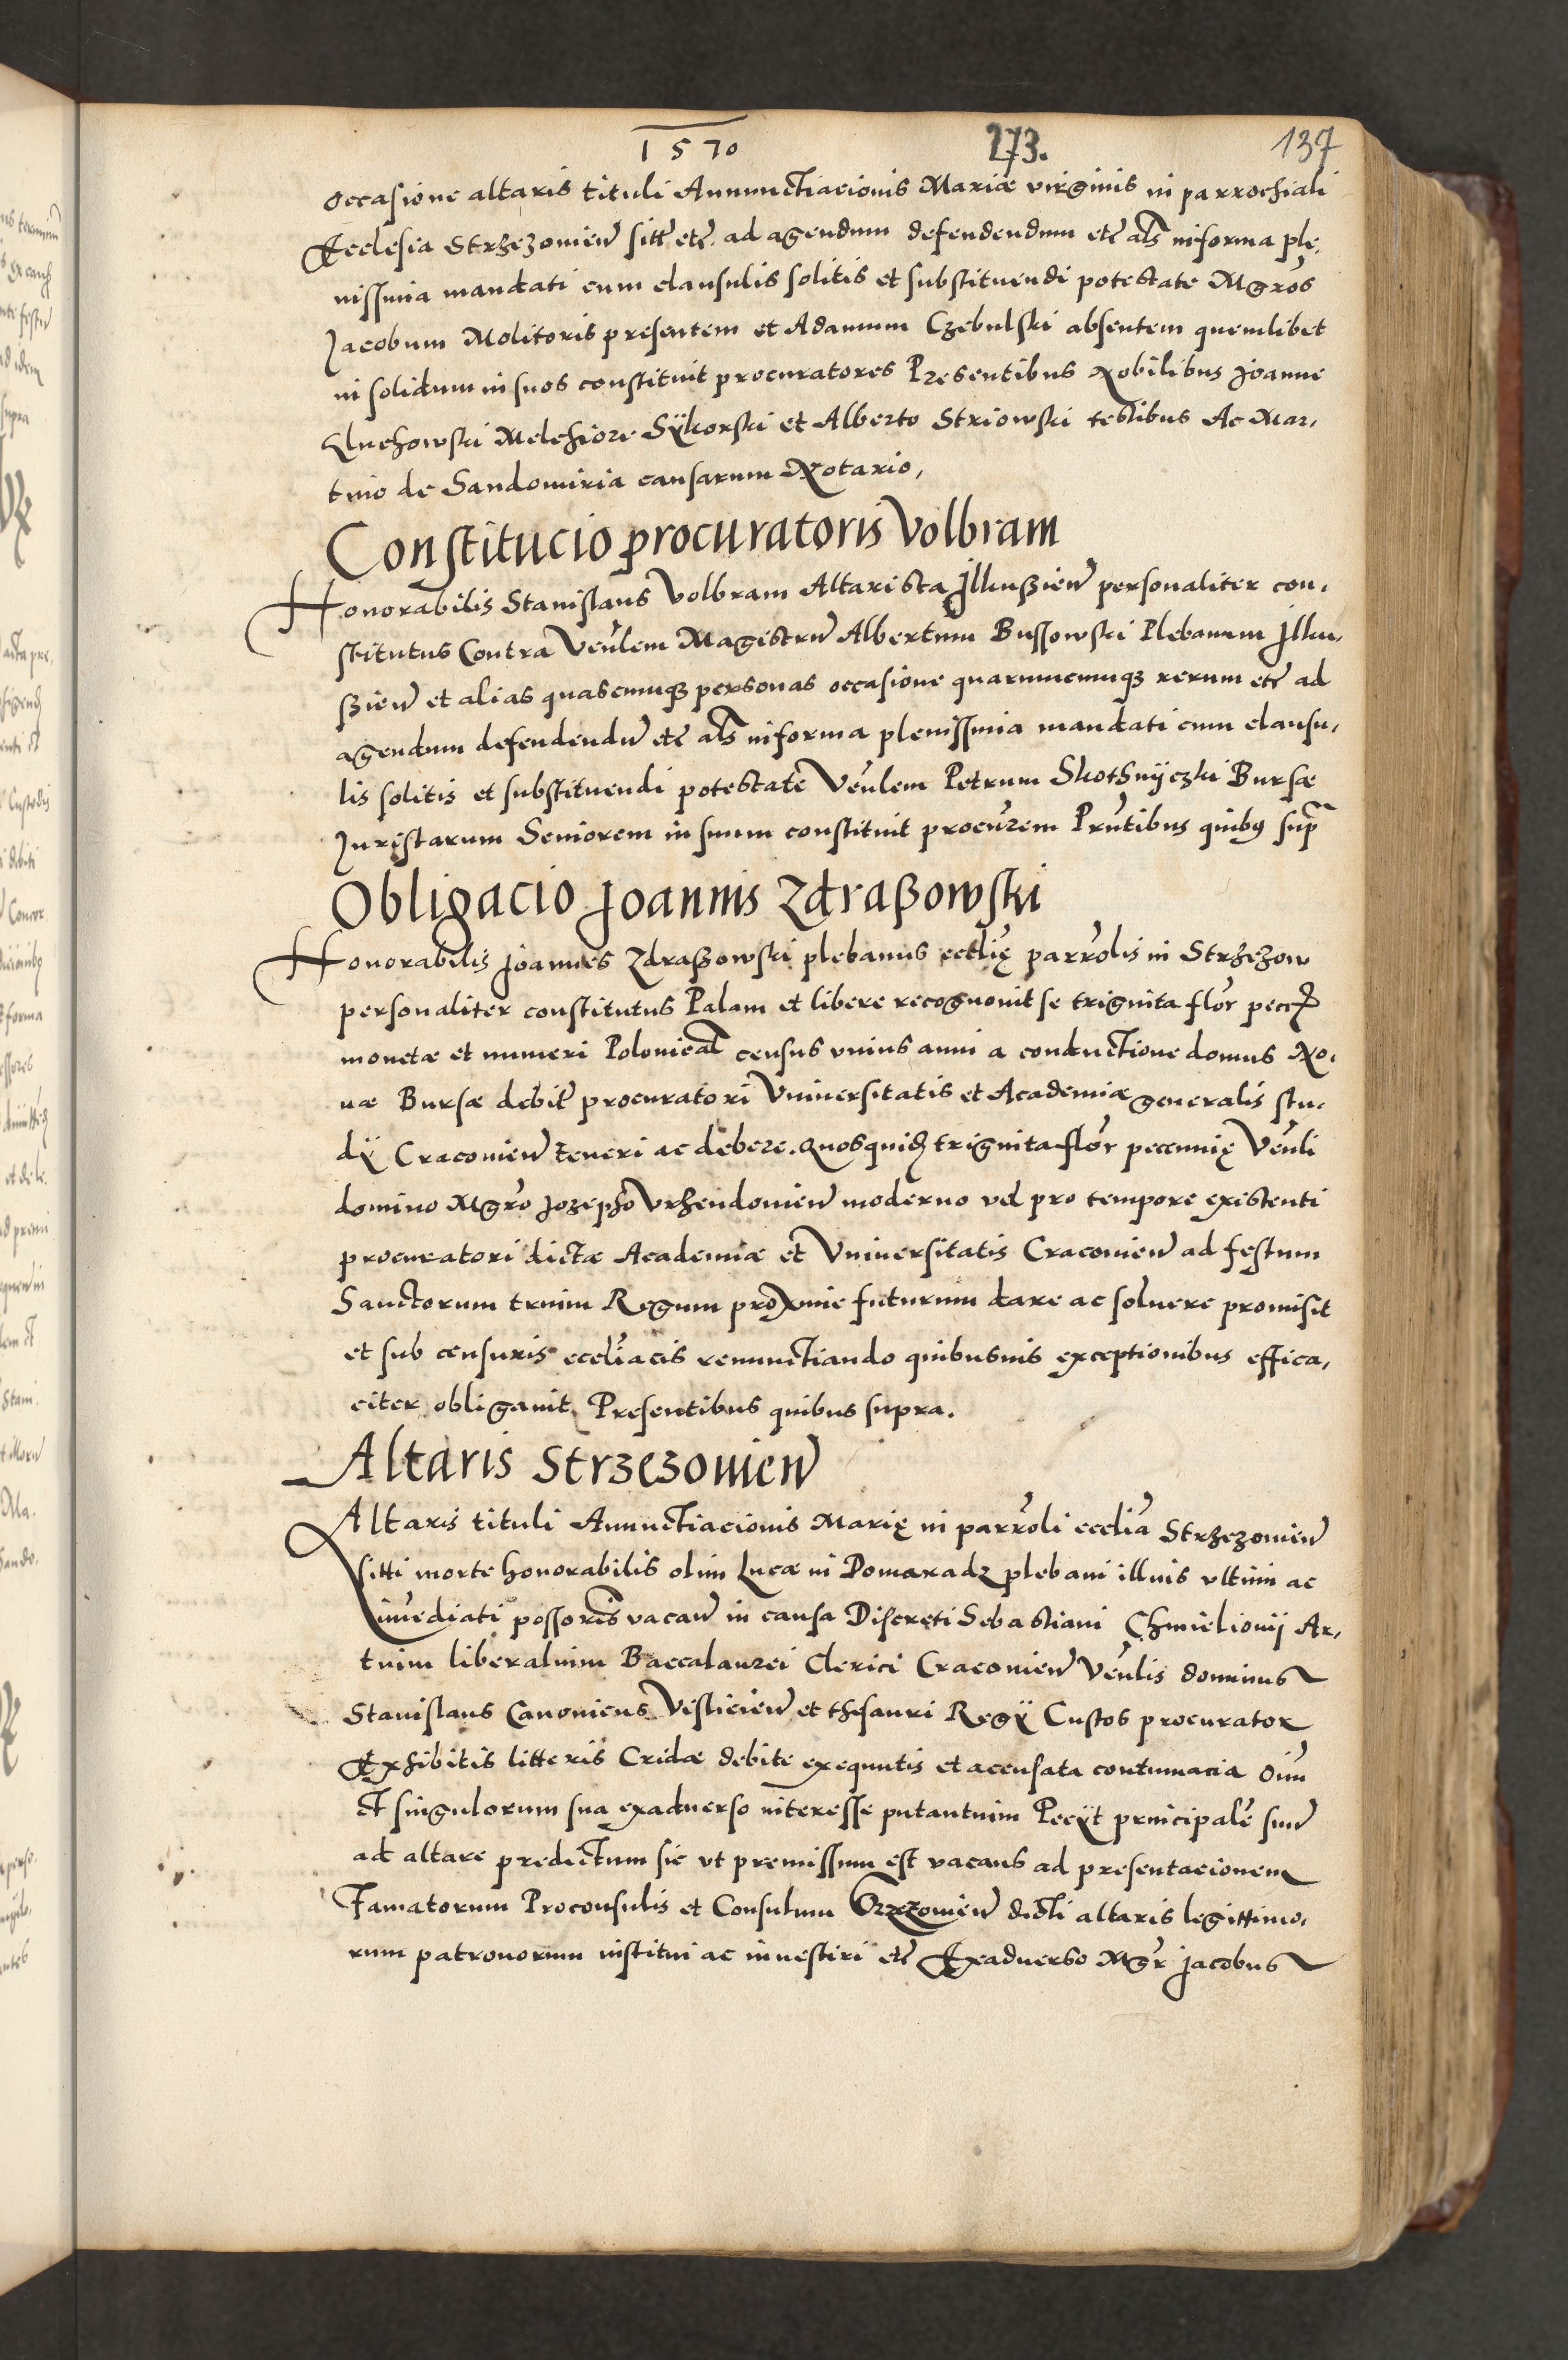 1570 273. 137
occasione altaris tituli Annunctiacionis Mariæ virginis in parrochiali
Ecclesia Strzezowień sitt etc̃. ad agendum defendendum etc̃ als̃ in forma ple,
nissima mandati cum clausulis solitis et substituendi potestate Mgr̃os
Jacobum Molitoris presentem et Adamum Czebulski absentem quemlibet
in solidum in suos constituit procuratores Presentibus Nobilibus Joanne
Gluchowski Melchiore Sÿkorski et Alberto Striowski testibus Ac Mar,
tino de Sandomiria causarum Notario,
Constitucio procuratoris Volbram
Honorabilis Stanislaus Volbram Altarista Jlkußień personaliter con,
stitutus Contra Veñlem Magistrũ Albertum Bussowski Plebanum Jlku,
ßień et alias quascumqꝫ personas occasione quarumcumqꝫ rerum etc̃ ad
agendum defendendũ etc̃ als̃ in forma plenissima mandati cum clausu,
lis solitis et substituendi potestate Veñlem Petrum Skothnÿczki Bursæ
Juristarum Seniorem in suum constituit procur̃em Prñtibus quibꝰ supã
Obligacio Joannis Zdraßowski
Honorabilis Joannes Zdraßowski plebanus eccliẽ parr̃olis in Strzezow
personaliter constitutus Palam et libere recognouit se triginta flor̃ pecc̃
monetæ et numeri Polonical̃ census vnius anni a conductione domus No,
uæ Bursæ debit̃ procuratori Vniuersitatis et Academiæ generalis stu,
dÿ Cracouień teneri ac debere. quosquid̃ triginta flor̃ peccunię Veñli
domino Mgr̃o Jozepho Vrzendowień moderno vel pro tempore existenti
procuratori dictæ Academiæ et Vniuersitatis Cracouień ad festum
Sanctorum trium Regum proxime futurum dare ac soluere promisit
et sub censuris eccl̃iacis renunctiando quibusuis exceptionibus effica,
citer obligauit. Presentibus quibus supra.
Altaris Strzezowień
Altaris tituli Annuctiacionis Marię in parr̃oli eccl̃ia Strzezowień
sitti morte honorabilis olim Lucæ in Domaradz plebani illius vltimi ac
im̃ediati possoris̃ vacañ in causa Discreti Sebastiani Chmielionij Ar,
tium liberalium Baccalaurei Clerici Cracouień Veñlis dominus
Stanislaus Canonicus Visliciień et thesauri Regÿ Custos procurator
Exhibitis litteris Cridæ debite exequutis et accusata contumacia oim̃
et singulorum sua exaduerso interesse putantium Pecÿt principalẽ suũ
ad altare predictum sic vt premissum est vacans ad presentacionem
Famatorum Proconsulis et Consulum Strzezowień dicti altaris legittimo,
rum patronorum institui ac inuestiri etc̃ Exaduerso Mgr̃ Jacobus